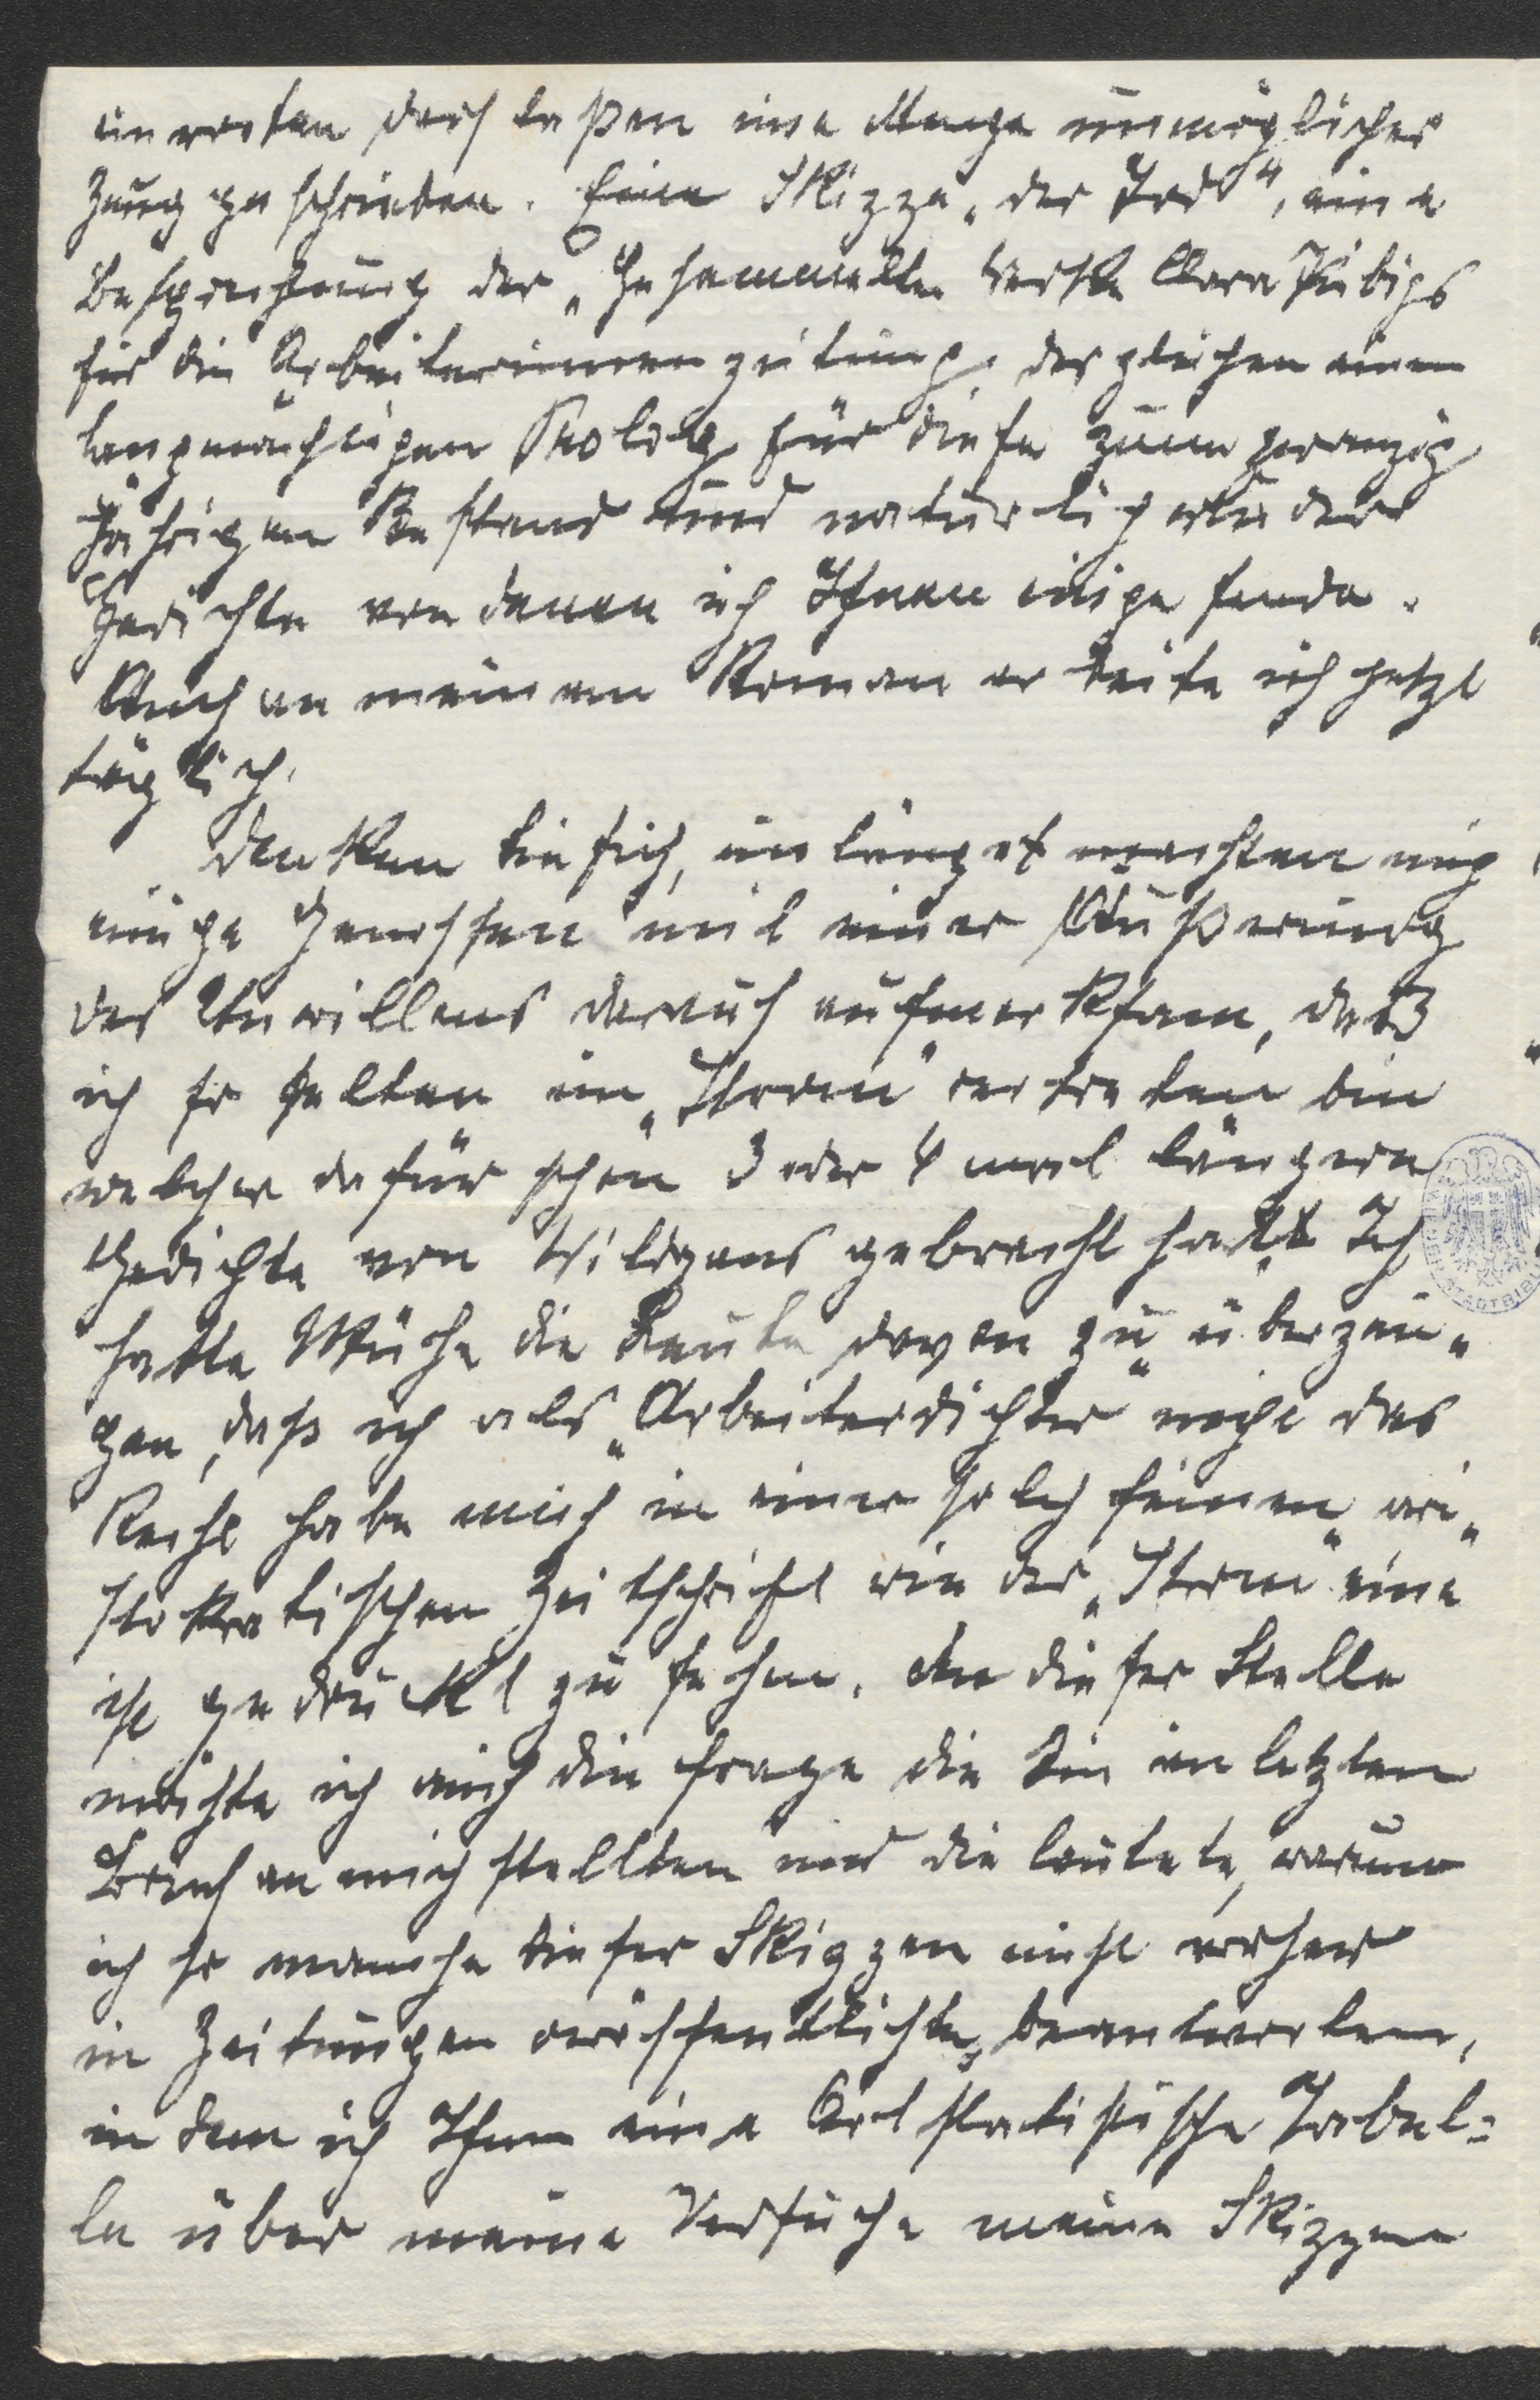 unraten doch laßen eine Menge unmöglicher
Zeug geschrieben. Eine Skizze „der Tod“, eine
Besprechung der „Gesammelten Werke Clara Viebigs
für die Arbeiterinnenzeitung, desgleichen einen
langmächtigen Prolog für diese zum zwanzig
jährigen Bestand und natürlich wieder
Gedichte von denen ich Ihnen einige sende.
Auch an meinem Roman arbeite ich jetzt
täglich.
Denken Sie sich, unlängst machten mich
einige Genossen mit einer Äußerung
des Unwillens darauf aufmerksam, daß
ich so selten im „Strom“ vertreten bin
welcher dafür schon 3 oder 4 mal längere
Gedichte von Wildgans gebracht hat. Ich
hatte Mühe die Leute davon zu überzeu„
gen, daß ich als „Arbeiterdichter“ nicht das
Recht habe mich in einer solch feinen „ari„
stokratischen Zeitschrift wie der „Strom“ eine
ist gedruckt zu sehen. An dieser Stelle
möchte ich auch die Frage die Sie im letzten
Brief an mich stellten und die lautete, warum
ich so manche dieser Skizzen nicht vorher
in Zeitungen veröffentlichte, beantworten,
in dem ich Ihnen eine Art statistische Tabel=
le über meine Versuche meine Skizzen
STADTBIB